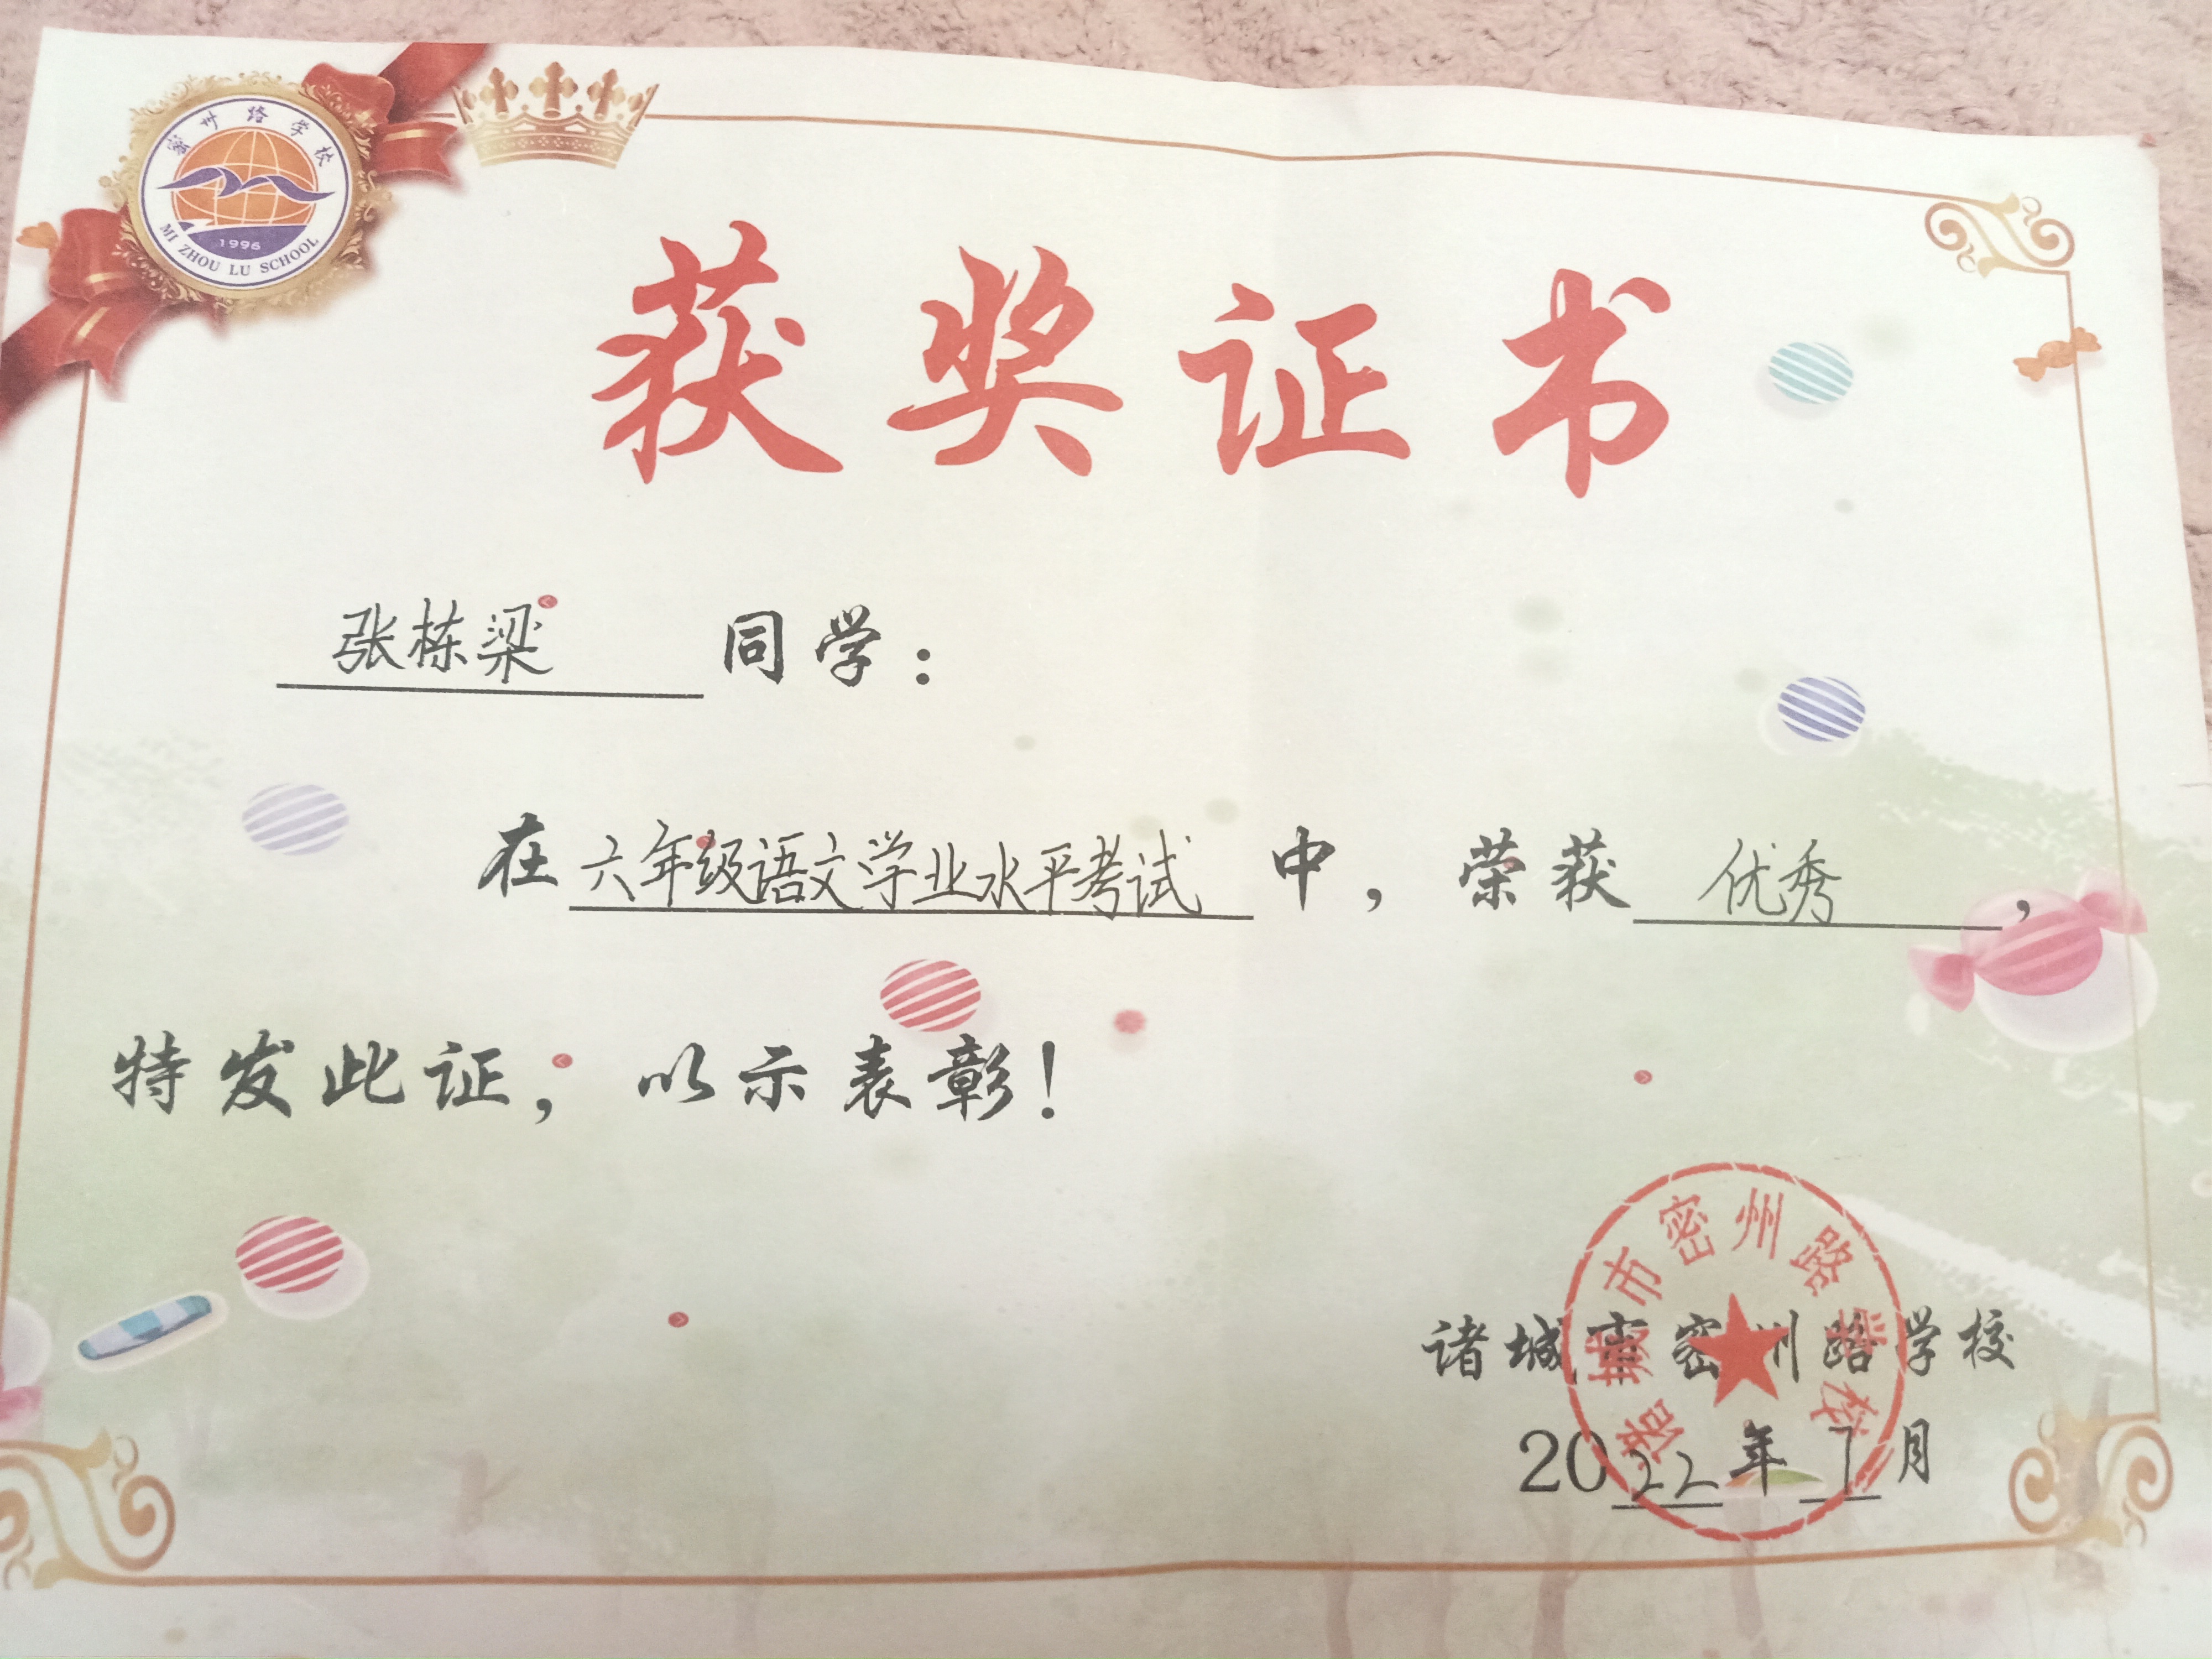 密州路学校
1996
MI ZHOU LU SCHOOL
获奖证书
张栋梁 同学：
在六年级语文学业水平考试中，荣获 优秀，
特发此证，以示表彰！
诸城市密州路学校
诸城市密州路学校
2022年7月